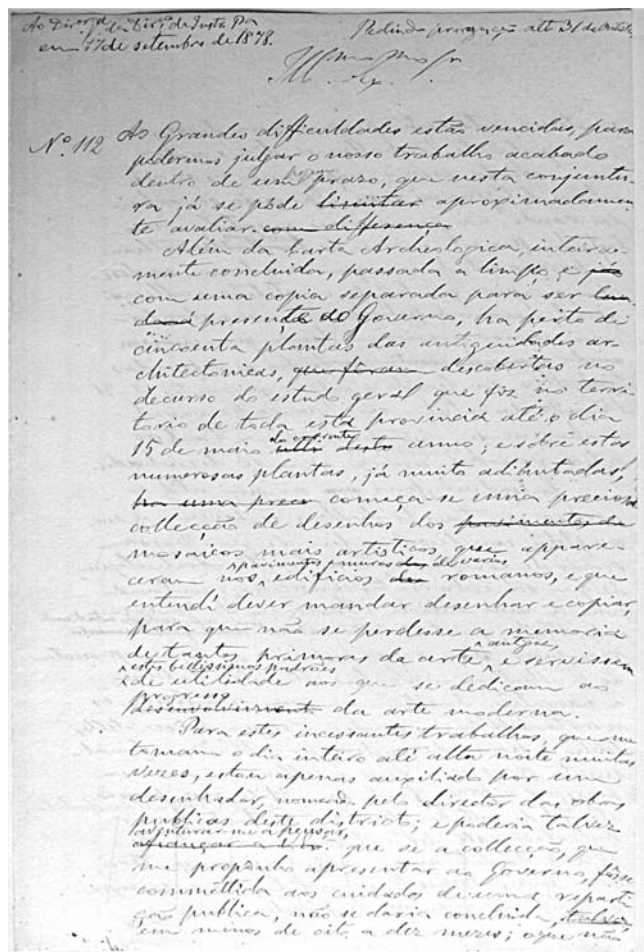 Ao Director da Dir. de Instr. Pa
em 17 de setembro de 1878.
Pedindo prorogação até 31 de
Illmo Exmo Sr
Nº 112 As Grandes difficuldades estão vencidas, para
podermos julgar o nosso trabalho acabado
dentro de um prazo, que nesta conjunctu-
ra já se póde limitar aproximadamen-
te avaliar. com differença
Além da Carta Archeologica, inteira-
mente concluida, passada a limpo, e já
com uma copia separada para ser
presente ao Governo, ha perto de
cincoenta plantas das antiguidades ar-
chitectonicas, que fôram descobertas no
decurso do estudo geral que fiz no terri-
torio de toda esta provincia até o dia
15 de maio do corrente deste anno; e sobre estas
numerosas plantas, já muito adiantadas,
ha uma prec começa-se uma preciosa
collecção de desenhos dos pavimentos de
mosaicos mais artisticos, que appare-
ceram nos pavimentos e muros de varios
edificios romanos, e que
entendi dever mandar desenhar e copiar,
para que não se perdesse a memoria
de tantos primores da arte antiga, e servissem
estes bellissimos padrões
de utilidade aos que se dedicam ao
progresso
desenvolviment. da arte moderna.
Para estes incessantes trabalhos, que me
tomam o dia inteiro até alta noite muitas
vezes, estou apenas auxiliado por um
desenhador, nomeado pelo director das obras
publicas deste districto; e poderia talvez
aventurar-me a pensar,
afiançar que se a collecção, que
me proponho apresentar ao Governo, fosse
commettida aos cuidados de uma reparti-
ção publica, não se daria concluida, talvez
em menos de oito a dez mezes; o que não